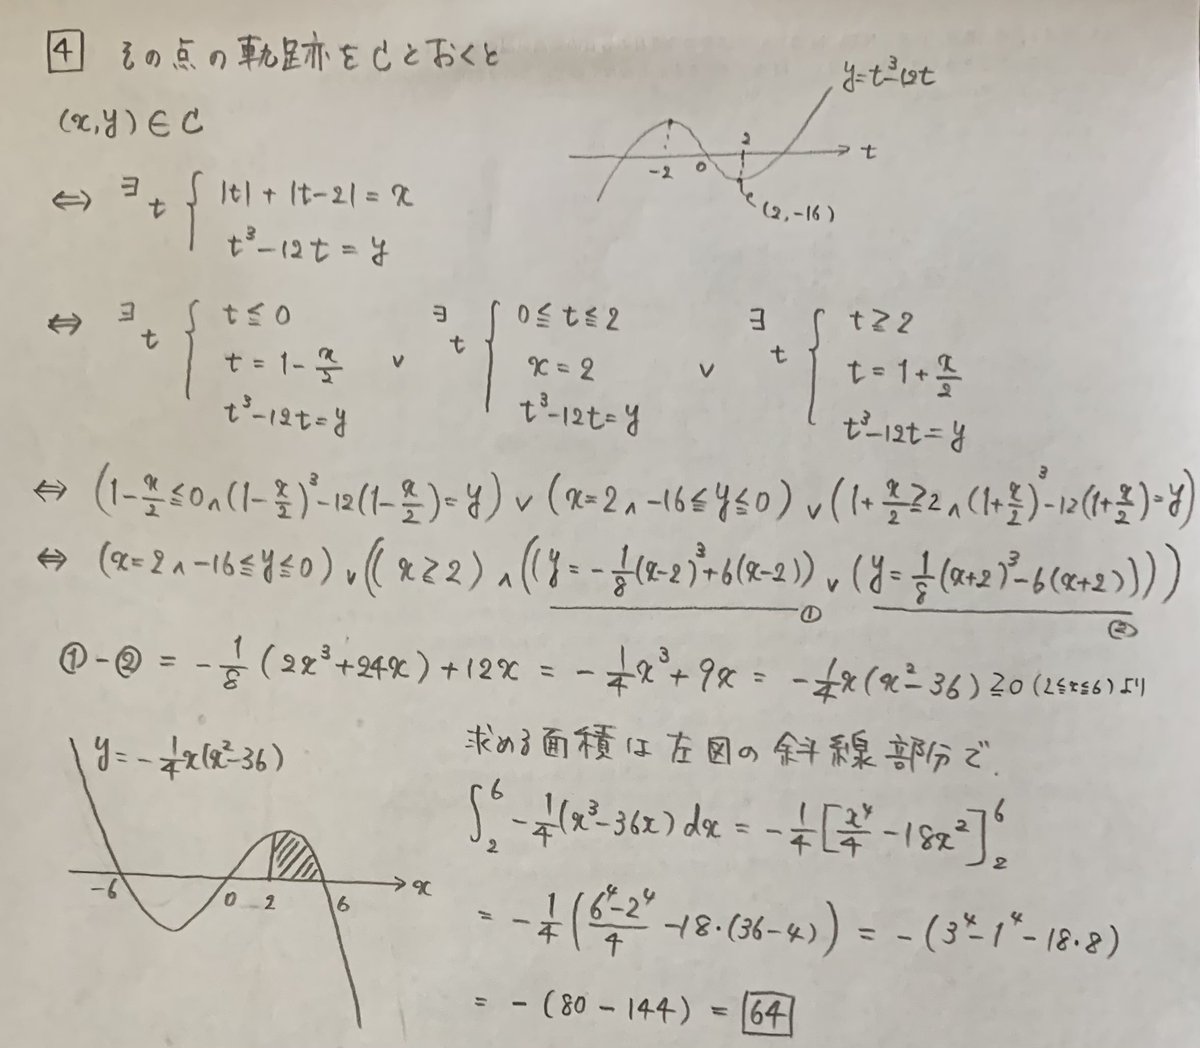 4 その点の軌跡をCとおくと
(x,y)∈C
y=t³-12t
t
-2 0 2
(2,-16)
⇔ ∃t { |t|+|t-2|=x
t³-12t=y
⇔ ∃t { t≦0 ∨ ∃t { 0≦t≦2 ∨ ∃t { t≧2
t=1-x/2 x=2 t=1+x/2
t³-12t=y t³-12t=y t³-12t=y
⇔ (1-x/2≦0∧(1-x/2)³-12(1-x/2)=y)∨(x=2∧-16≦y≦0)∨(1+x/2≧2∧(1+x/2)³-12(1+x/2)=y)
⇔ (x=2∧-16≦y≦0)∨((x≧2)∧((y=-1/8(x-2)³+6(x-2))∨(y=1/8(x+2)³-6(x+2))))
① ②
①-②=-1/8(2x³+24x)+12x=-1/4x³+9x=-1/4x(x²-36)≧0(2≦x≦6)より
y=-1/4x(x²-36)
-6 0 2 6 x
求める面積は左図の斜線部分で、
∫₂⁶-1/4(x³-36x)dx=-1/4[x⁴/4-18x²]₂⁶
=-1/4((6⁴-2⁴)/4-18・(36-4))=-(3⁴-1⁴-18・8)
=-(80-144)=64